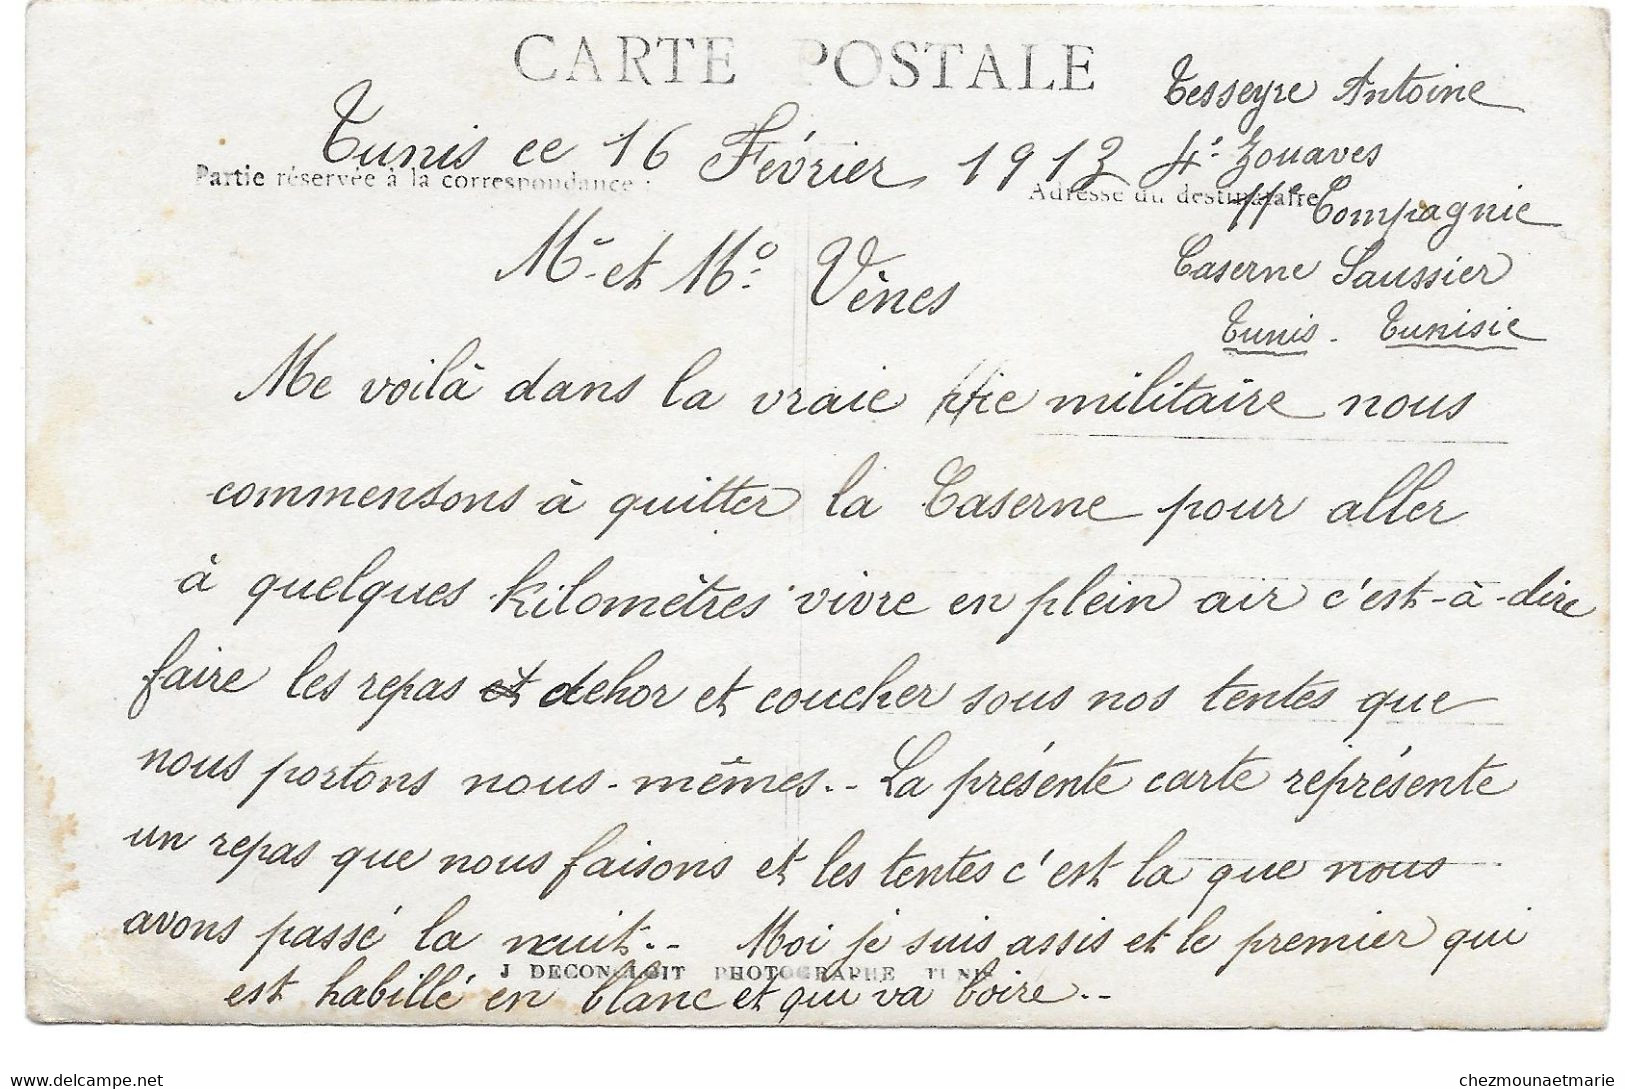 CARTE POSTALE
Tesseyre Antoine
Tunis ce 16 Février 1913
4e Zouaves
Partie réservée à la correspondance :
Adresse du destinataire
11e Compagnie
Mr et Me Vènes
Caserne Saussier
Tunis - Tunisie
Me voilà dans la vraie vie militaire nous
commensons à quitter la Caserne pour aller
à quelques kilomètres vivre en plein air c'est-à-dire
faire les repas et dehor et coucher sous nos tentes que
nous portons nous-mêmes.. La présente carte représente
un repas que nous faisons et les tentes c'est la que nous
avons passé la nuit.. Moi je suis assis et le premier qui
J DECONCLOIT PHOTOGRAPHE TUNIS
est habillé en blanc et qui va boire..
chezmounaetmarie
www.delcampe.net